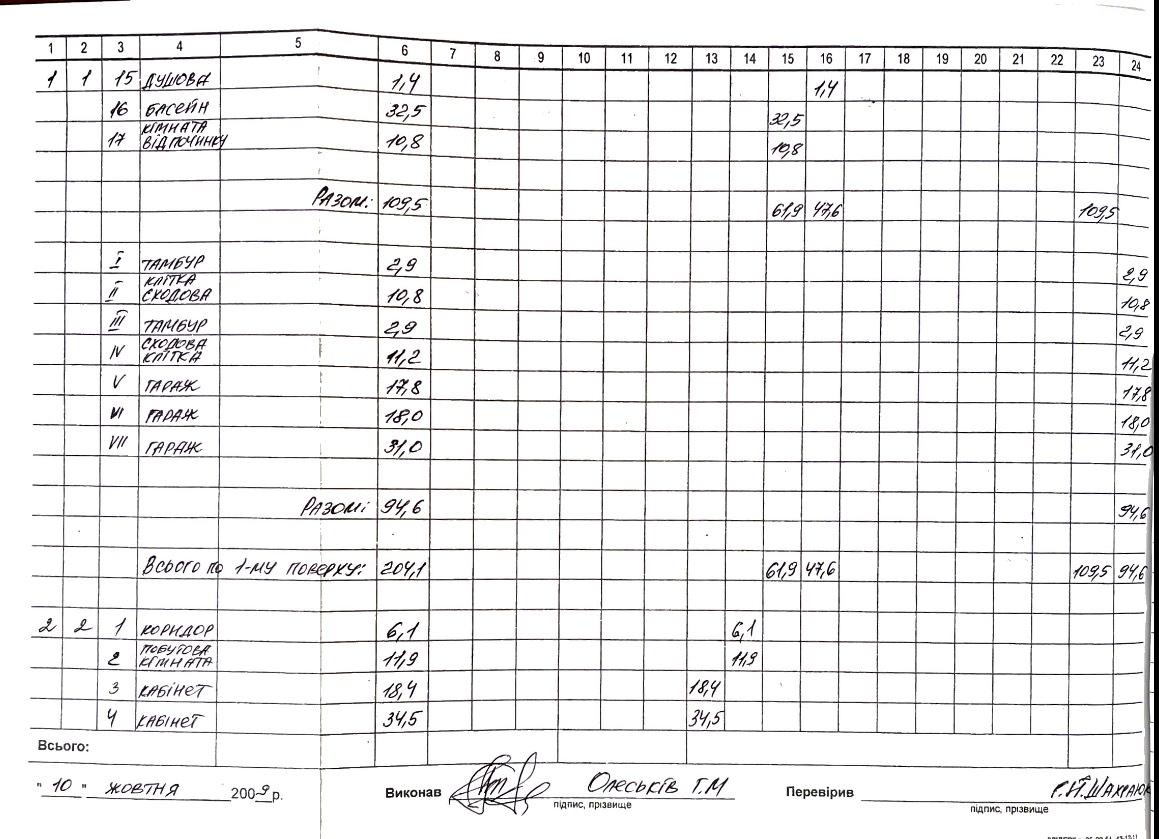 1 2 3 4 5 6 7 8 9 10 11 12 13 14 15 16 17 18 19 20 21 22 23 24
1 1 15 ДУШОВА 1,4 1,4
16 БАСЕЙН 32,5 32,5
17 КІМНАТА
ВІДПОЧИНКУ 10,8 10,8
РАЗОМ: 109,5 61,9 47,6 109,5
I ТАМБУР 2,9 2,9
II КЛІТКА
СХОДОВА 10,8 10,8
III ТАМБУР 2,9 2,9
IV СХОДОВА
КЛІТКА 11,2 11,2
V ГАРАЖ 17,8 17,8
VI ГАРАЖ 18,0 18,0
VII ГАРАЖ 31,0 31,0
РАЗОМ: 94,6 94,6
ВСЬОГО ПО 1-МУ ПОВЕРХУ: 204,1 61,9 47,6 109,5 94,6
2 2 1 КОРИДОР 6,1 6,1
2 ПОБУТОВА
КІМНАТА 11,9 11,9
3 КАБІНЕТ 18,4 18,4
4 КАБІНЕТ 34,5 34,5
Всього:
" 10 " ЖОВТНЯ 2009 р. Виконав Олеськів Г.М Перевірив
підпис, прізвище підпис, прізвище